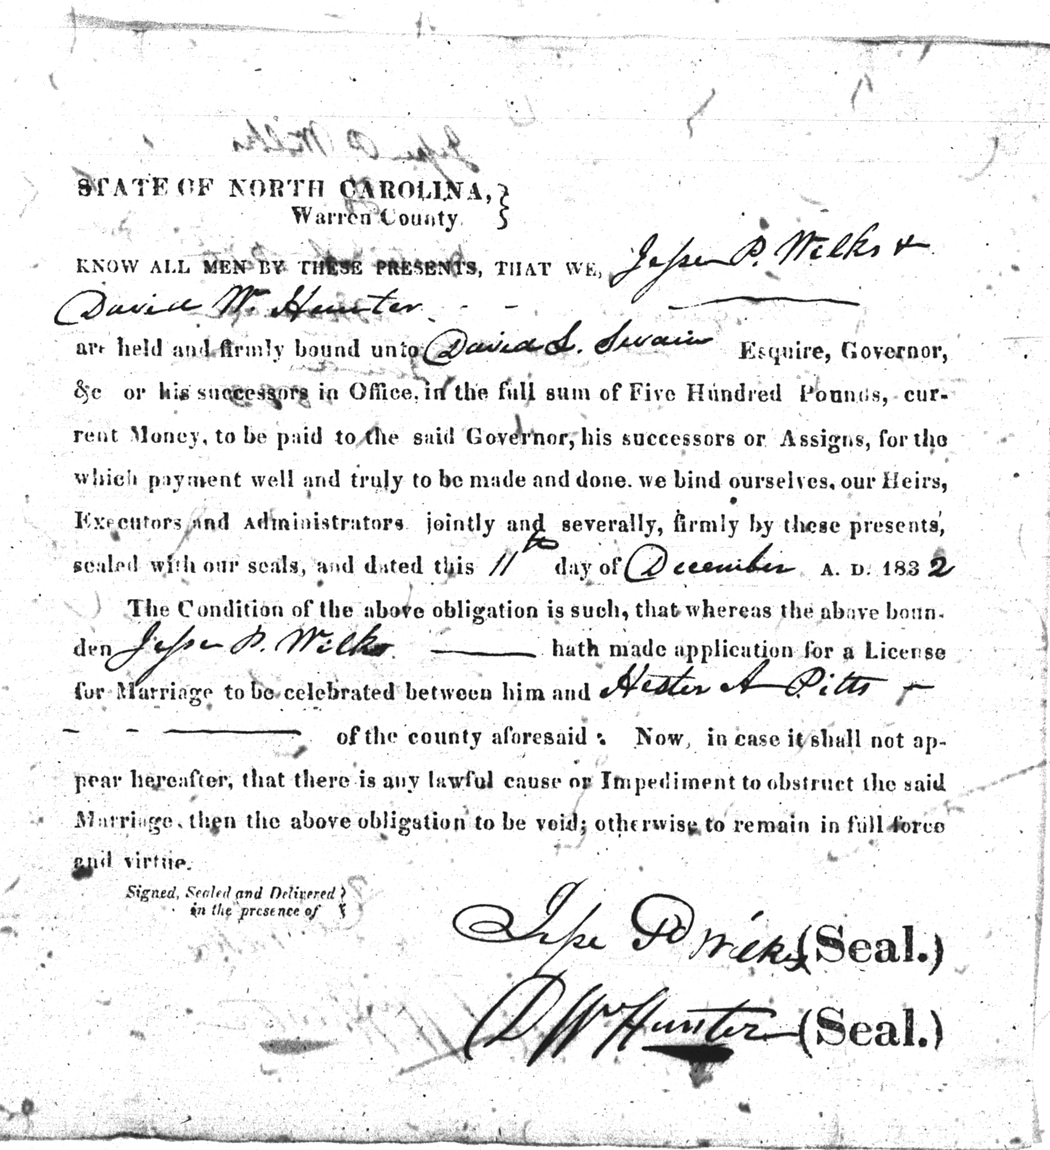 STATE OF NORTH CAROLINA,
Warren County.
KNOW ALL MEN BY THESE PRESENTS, THAT WE, Jesse P. Wilks &
David W. Hunter
are held and firmly bound unto David L. Swain Esquire, Governor,
&c or his successors in Office, in the full sum of Five Hundred Pounds, cur-
rent Money, to be paid to the said Governor, his successors or Assigns, for the
which payment well and truly to be made and done. we bind ourselves, our Heirs,
Executors and Administrators jointly and severally, firmly by these presents,
sealed with our seals, and dated this 11th day of December A. D. 1832
The Condition of the above obligation is such, that whereas the above boun-
den Jesse P. Wilks hath made application for a License
for Marriage to be celebrated between him and Hester A Pitts
of the county aforesaid: Now, in case it shall not ap-
pear hereafter, that there is any lawful cause or Impediment to obstruct the said
Marriage, then the above obligation to be void; otherwise to remain in full force
and virtue.
Signed, Sealed and Delivered
in the presence of
Jesse P Wilks (Seal.)
D W Hunter (Seal.)